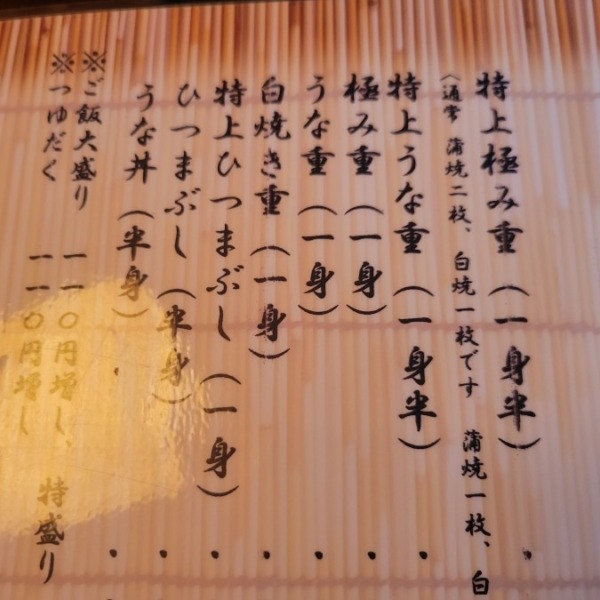 特上極み重（一身半）・
（通常 蒲焼二枚、白焼一枚です 蒲焼一枚、白
特上うな重（一身半）・
極み重（一身）・
うな重（一身）・
白焼き重（一身）・
特上ひつまぶし（一身）・
ひつまぶし（半身）・
うな丼（半身）・
※ご飯大盛り 一一〇円増し、特盛り
※つゆだく 一一〇円増し